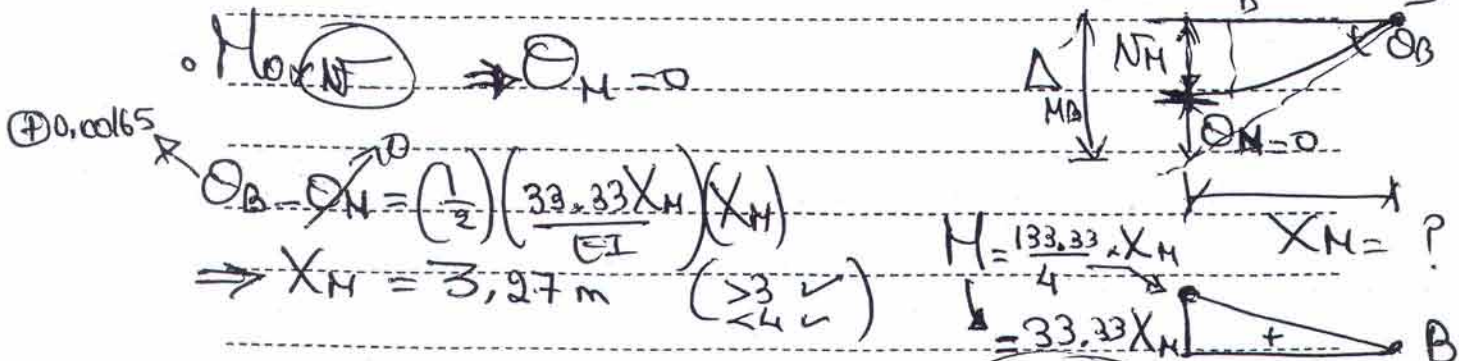 . Max v ⇒ θ_M = 0
⊕0,00165
θ_B - θ_M = (1/2) (33.33X_M / EI) (X_M)
0
⇒ X_M = 3,27 m (>3 ✓ <4 ✓)
B
Δ_MB
v_M
θ_B
θ_M=0
X_M = ?
M = 133.33/4 . X_M
= 33.33X_M
+
B